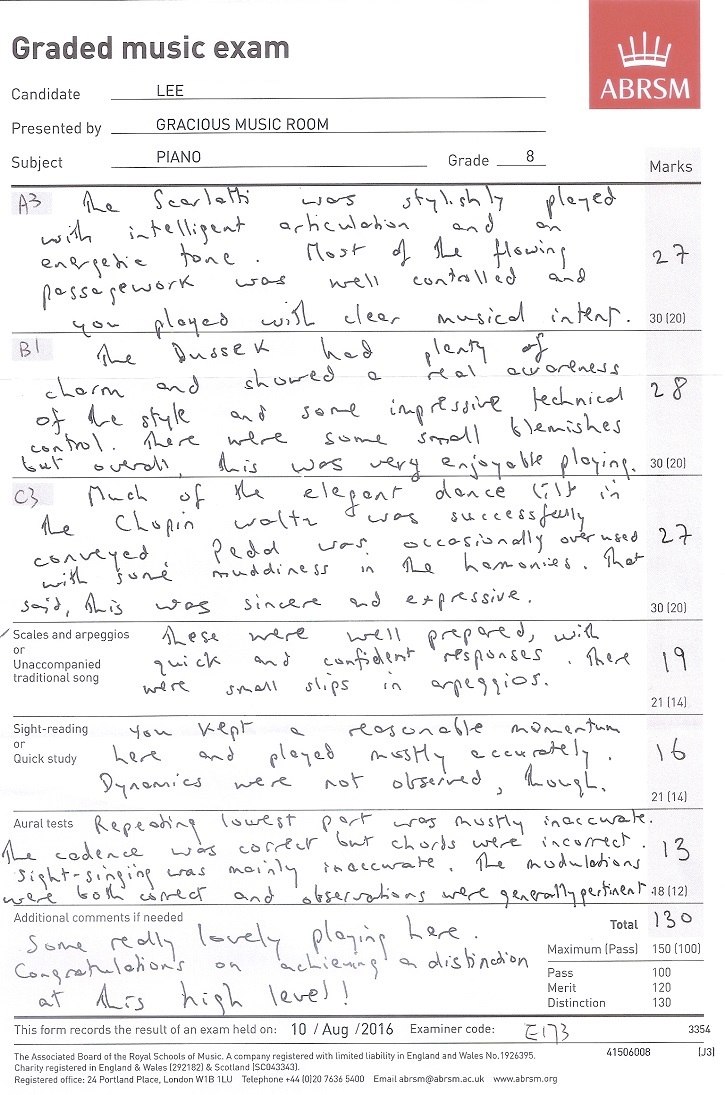 Graded music exam
ABRSM
Candidate LEE
Presented by GRACIOUS MUSIC ROOM
Subject PIANO Grade 8
Marks
A3 The Scarlatti was stylishly played
with intelligent articulation and an
energetic tone. Most of the flowing
passagework was well controlled and
you played with clear musical intent.
27
30 (20)
B1 The Dussek had plenty of
charm and showed a real awareness
of the style and some impressive technical
control. There were some small blemishes
but overall, this was very enjoyable playing.
28
30 (20)
C3 Much of the elegant dance lilt in
the Chopin waltz was successfully
conveyed. Pedal was occasionally over used
with some muddiness in the harmonies. That
said, this was sincere and expressive.
27
30 (20)
Scales and arpeggios
or
Unaccompanied
traditional song
These were well prepared, with
quick and confident responses. There
were small slips in arpeggios.
19
21 (14)
Sight-reading
or
Quick study
You kept a reasonable momentum
here and played mostly accurately.
Dynamics were not observed, though.
16
21 (14)
Aural tests Repeating lowest part was mostly inaccurate.
The cadence was correct but chords were incorrect.
Sight-singing was mainly inaccurate. The modulations
were both correct and observations were generally pertinent
13
18 (12)
Additional comments if needed
Some really lovely playing here.
Congratulations on achieving a distinction
at this high level!
Total 130
Maximum (Pass) 150 (100)
Pass 100
Merit 120
Distinction 130
This form records the result of an exam held on: 10 / Aug / 2016 Examiner code: E173 3354
The Associated Board of the Royal Schools of Music. A company registered with limited liability in England and Wales No.1926395. 41506008 (J3)
Charity registered in England & Wales (292182) & Scotland (SC043343).
Registered office: 24 Portland Place, London W1B 1LU Telephone +44 (0)20 7636 5400 Email abrsm@abrsm.ac.uk www.abrsm.org